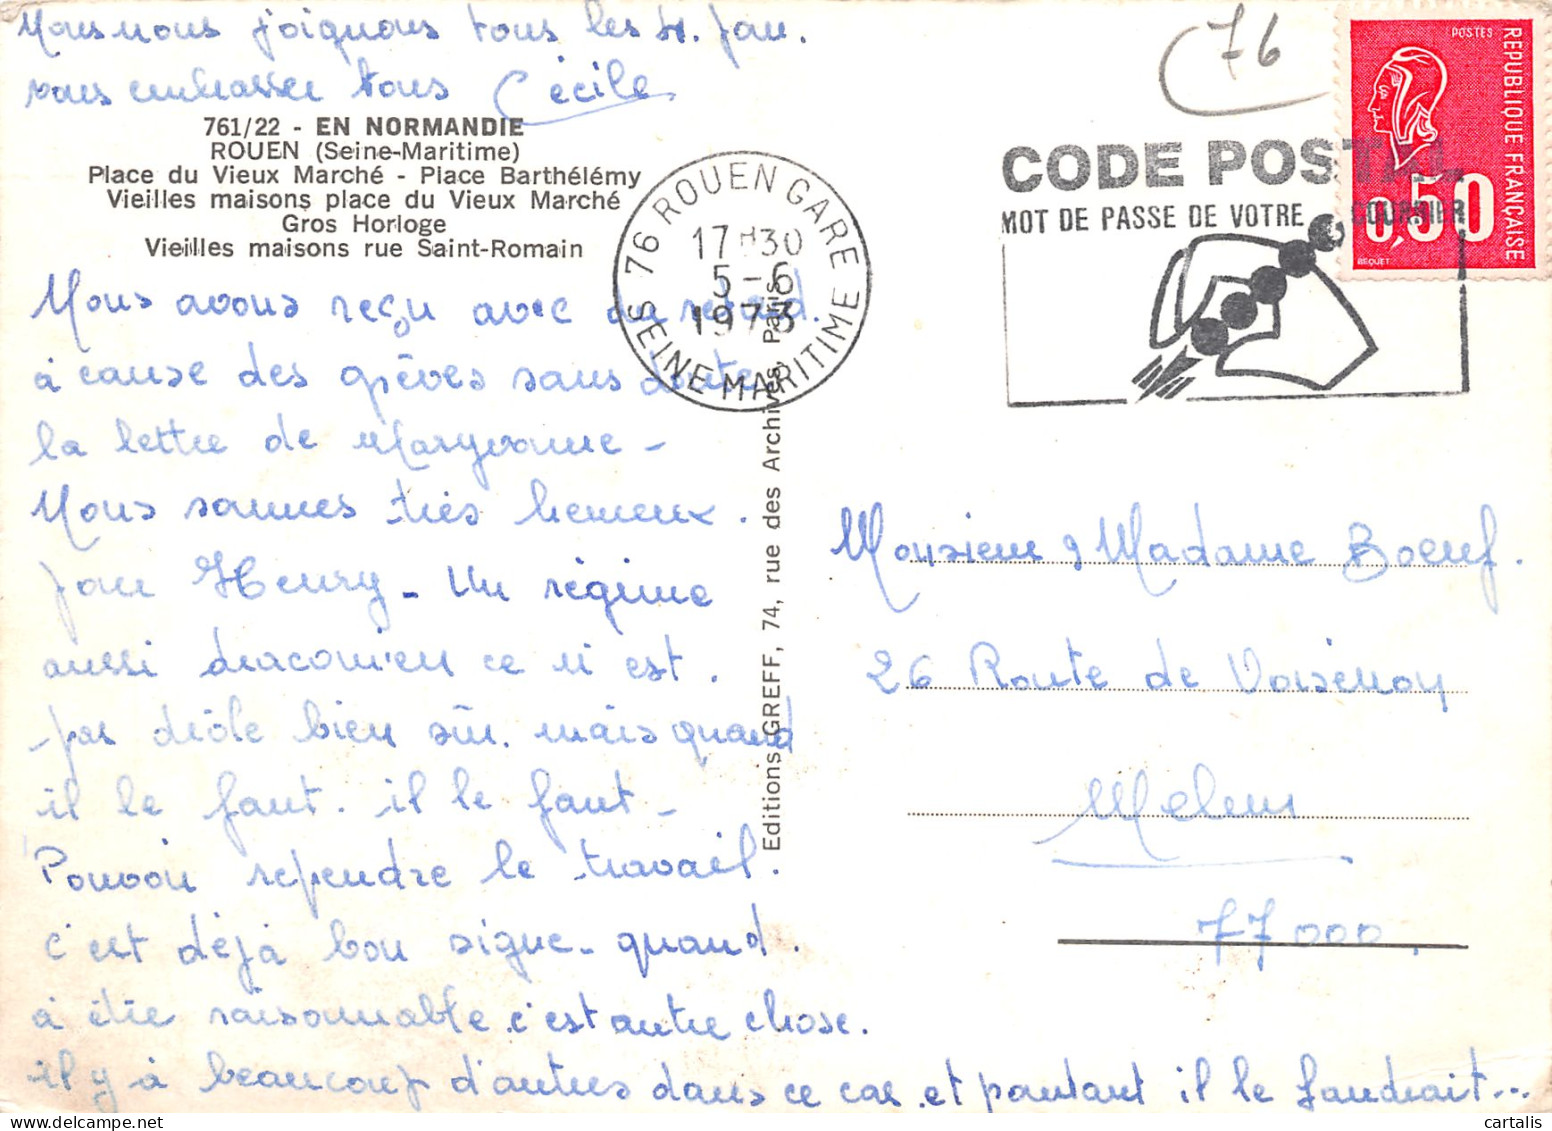 Nous nous joignons tous les 4. pour.
vous embrasser tous Cécile
761/22 - EN NORMANDIE
ROUEN (Seine-Maritime)
Place du Vieux Marché - Place Barthélémy
Vieilles maisons place du Vieux Marché
Gros Horloge
Vieilles maisons rue Saint-Romain
Nous avons reçu avec du retard.
à cause des grèves sans doute
la lettre de Maryvonne -
Nous sommes très heureux.
pour Henry - Un régime
aussi draconien ce n'est.
pas drôle bien sûr. mais quand
il le faut. il le faut -
Pouvoir reprendre le travail.
c'est déjà bon signe - quand.
à être raisonnable c'est autre chose.
il y à beaucoup d'autres dans ce cas et pourtant il le faudrait...
76 ROUEN GARE
17H30
5-6
1973
SEINE MARITIME
Editions GREFF, 74, rue des Archives, Paris
76
CODE POSTAL
MOT DE PASSE DE VOTRE COURRIER
POSTES
REPUBLIQUE FRANÇAISE
0,50
BEQUET
Monsieur & Madame Boeuf.
26 Route de Voisenon
Melun
77000.
delcampe.net
cartalis